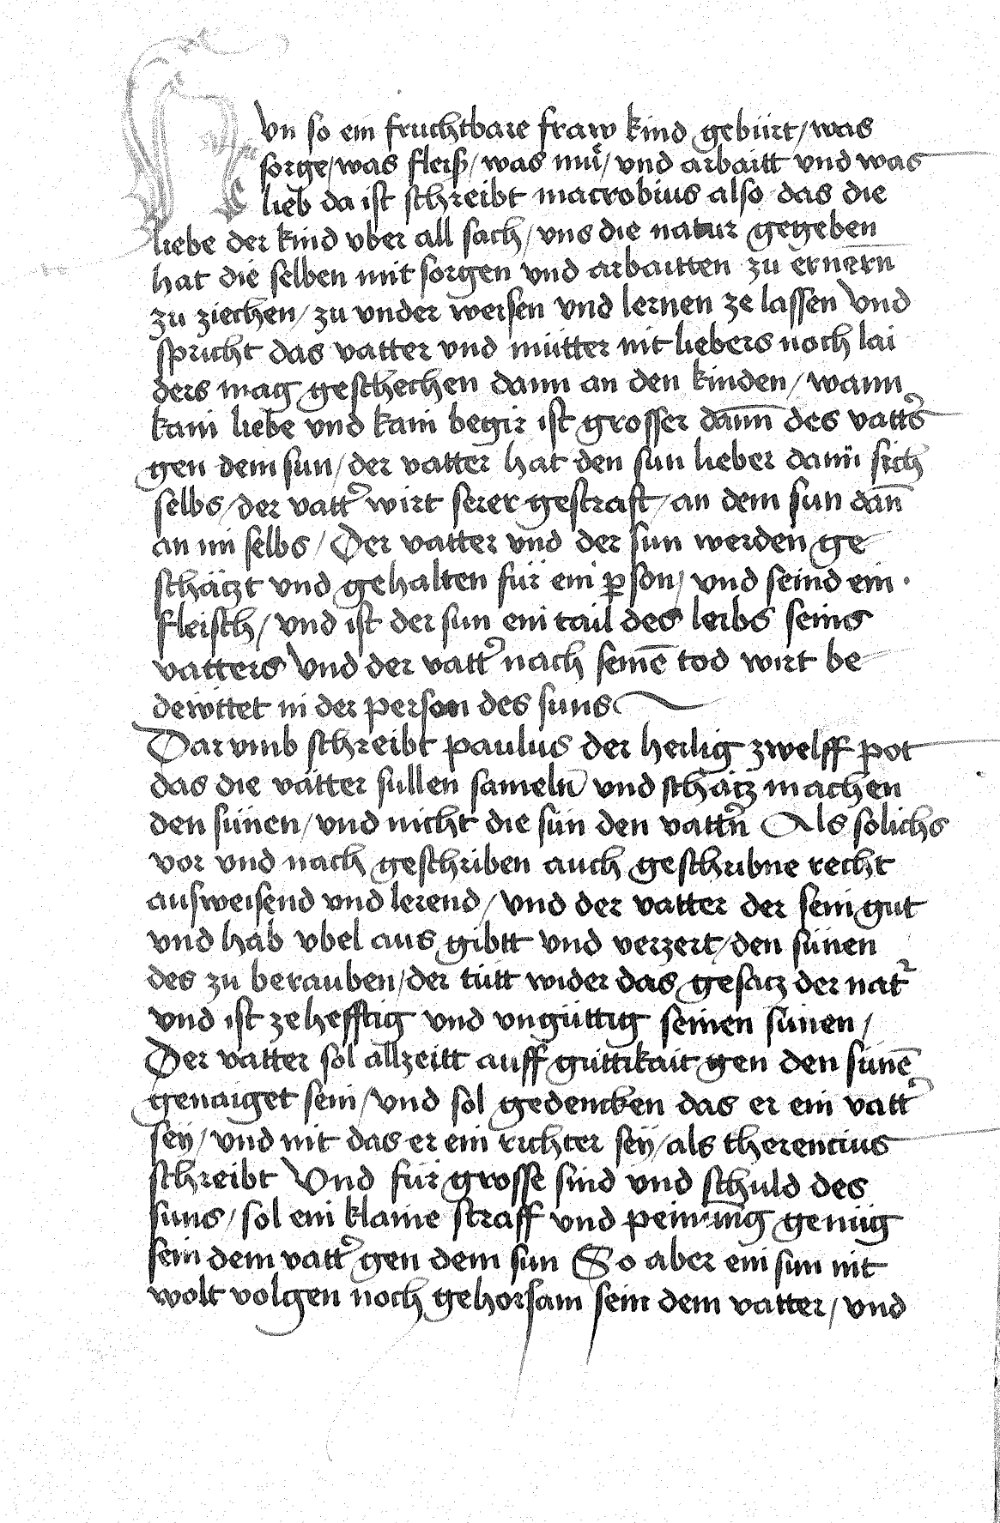 Nun so ein fruchtbare fraw kind gebürt/ was
sorge/ was fleiß/ was mü/ vnd arbaitt vnd was
lieb da ist schreibt macrobius also das die
liebe der kind vber all sach/ vns die natur gegeben
hat die selben mit sorgen vnd arbaitten zu ernern̄
zu ziechen/ zu vnder weisen vnd lernen ze lassen Vnd
spricht das vatter vnd mütter nit liebers noch lai
ders mag geschechen dann an den kinden/ wann
kain liebe vnd kain begir ist grosser dann̄ des vatt's
gen dem sun/ der vatter hat den sun lieber dann sich
selbs/ der vatt' wirt serer gestraft/ an dem sun dan̄
an im selbs/ Der vatter vnd der sun werden ge
schätzt vnd gehalten für ein ꝑson/ vnd seind ein
fleisch/ vnd ist der sun ein tail des leibs seins
vatters Vnd der vatt' nach seinē tod wirt be
dewttet in der person des suns
Dar vmb schreibt paulus der heilig zwelff pot
das die vätter sullen sameln vnd schätz machen
den sünen/ vnd nicht die sün den vattn̄ Als solichs
vor vnd nach geschriben auch geschribne recht
ausweisend vnd lerend/ vnd der vatter der sein gut
vnd hab vbel aus gibtt vnd verzert/ den sünen
des zu berauben/ der tütt wider das gesatz der nat'
vnd ist ze hefftig vnd vngüttig seinen sünen/
Der vatter sol allzeitt auff güttikait gen den sünē
genaiget sein/ vnd sol gedencken das er ein vatt'
seÿ/ vnd nit das er ein richter seÿ/ als therencius
schreibt Vnd für grosse sünd vnd schuld des
suns/ sol ein klaine straff vnd peinniḡ genüg
sein dem vatt' gen dem sun So aber ein sun nit
wolt volgen noch gehorsam sein dem vatter/ vnd